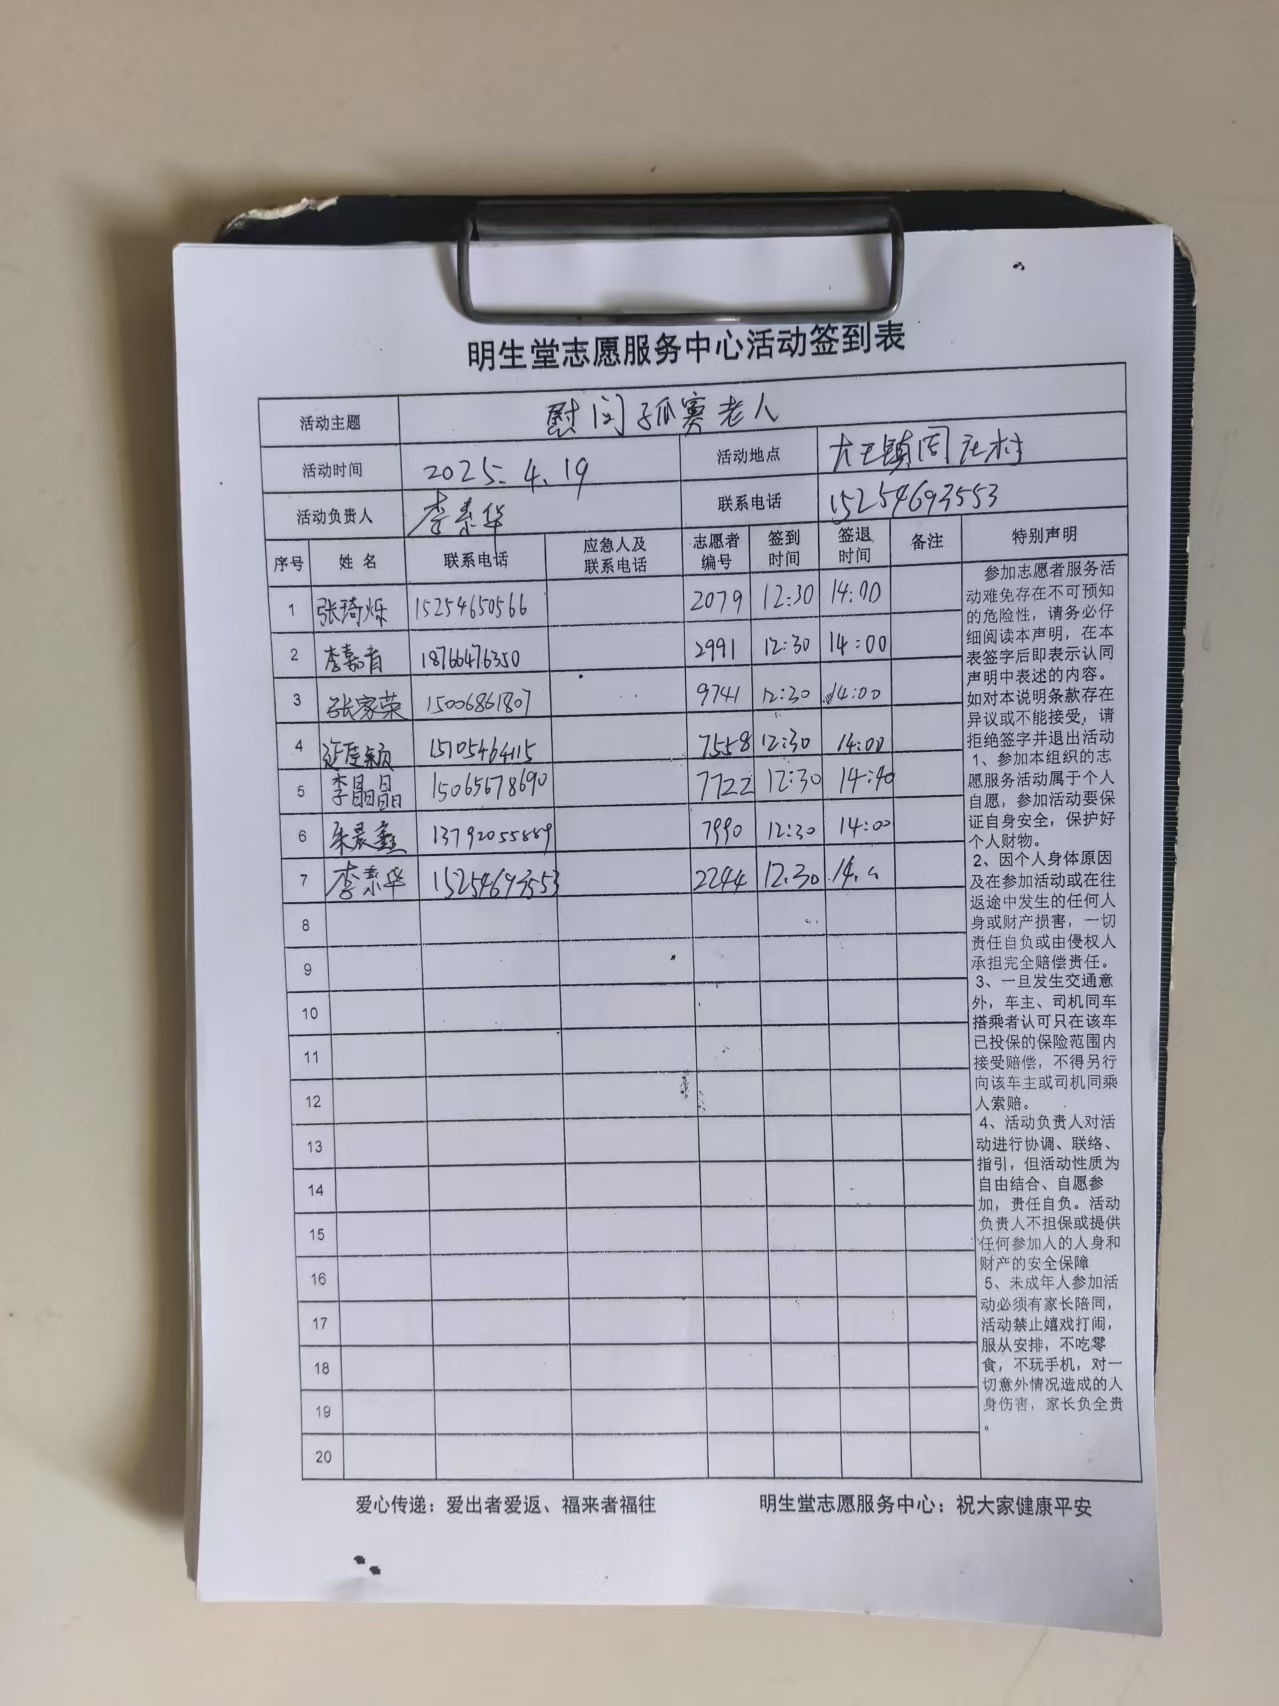 明生堂志愿服务中心活动签到表
活动主题 慰问孤寡老人
活动时间 2025.4.19 活动地点 大王镇周社村
活动负责人 李泰华 联系电话 15254693553
序号 姓名 联系电话 应急人及联系电话 志愿者编号 签到时间 签退时间 备注 特别声明
1 张琦烁 15254650566 2079 12:30 14:00
2 李嘉音 18766476350 2991 12:30 14:00
3 张家荣 15006861807 9741 12:30 14:00
4 15705464115 7558 12:30 14:00
5 李晶晶 15065678690 7722 12:30
6 朱晨鑫 13792055889 7990 12:30 14:00
7 李泰华 15254693553 2244 12.30
8
9
10
11
12
13
14
15
16
17
18
19
20
参加志愿者服务活
动难免存在不可预知
的危险性，请务必仔
细阅读本声明，在本
表签字后即表示认同
声明中表述的内容。
如对本说明条款存在
异议或不能接受，请
拒绝签字并退出活动
1、参加本组织的志
愿服务活动属于个人
自愿，参加活动要保
证自身安全，保护好
个人财物。
2、因个人身体原因
及在参加活动或在往
返途中发生的任何人
身或财产损害，一切
责任自负或由侵权人
承担完全赔偿责任。
3、一旦发生交通意
外，车主、司机同车
搭乘者认可只在该车
已投保的保险范围内
接受赔偿，不得另行
向该车主或司机同乘
人索赔。
4、活动负责人对活
动进行协调、联络、
指引，但活动性质为
自由结合、自愿参
加，责任自负。活动
负责人不担保或提供
任何参加人的人身和
财产的安全保障
5、未成年人参加活
动必须有家长陪同，
活动禁止嬉戏打闹，
服从安排，不吃零
食，不玩手机，对一
切意外情况造成的人
身伤害，家长负全责
。
爱心传递：爱出者爱返、福来者福往 明生堂志愿服务中心：祝大家健康平安